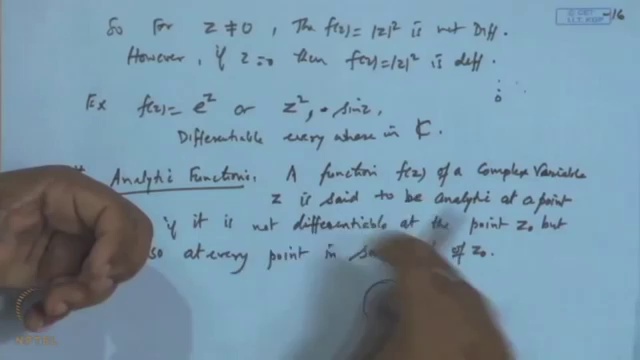 So For z ≠ 0, The f(z) = |z|² is not Diff.
However, if z=0 then f(z)=|z|² is diff.
Ex f(z) = e^z or z², sinz,
Differentiable every where in ℂ.
Analytic Function: A function f(z) of a Complex Variable
z is said to be analytic at a point
if it is not differentiable at the point z₀ but
so at every point in of z₀.
NPTEL